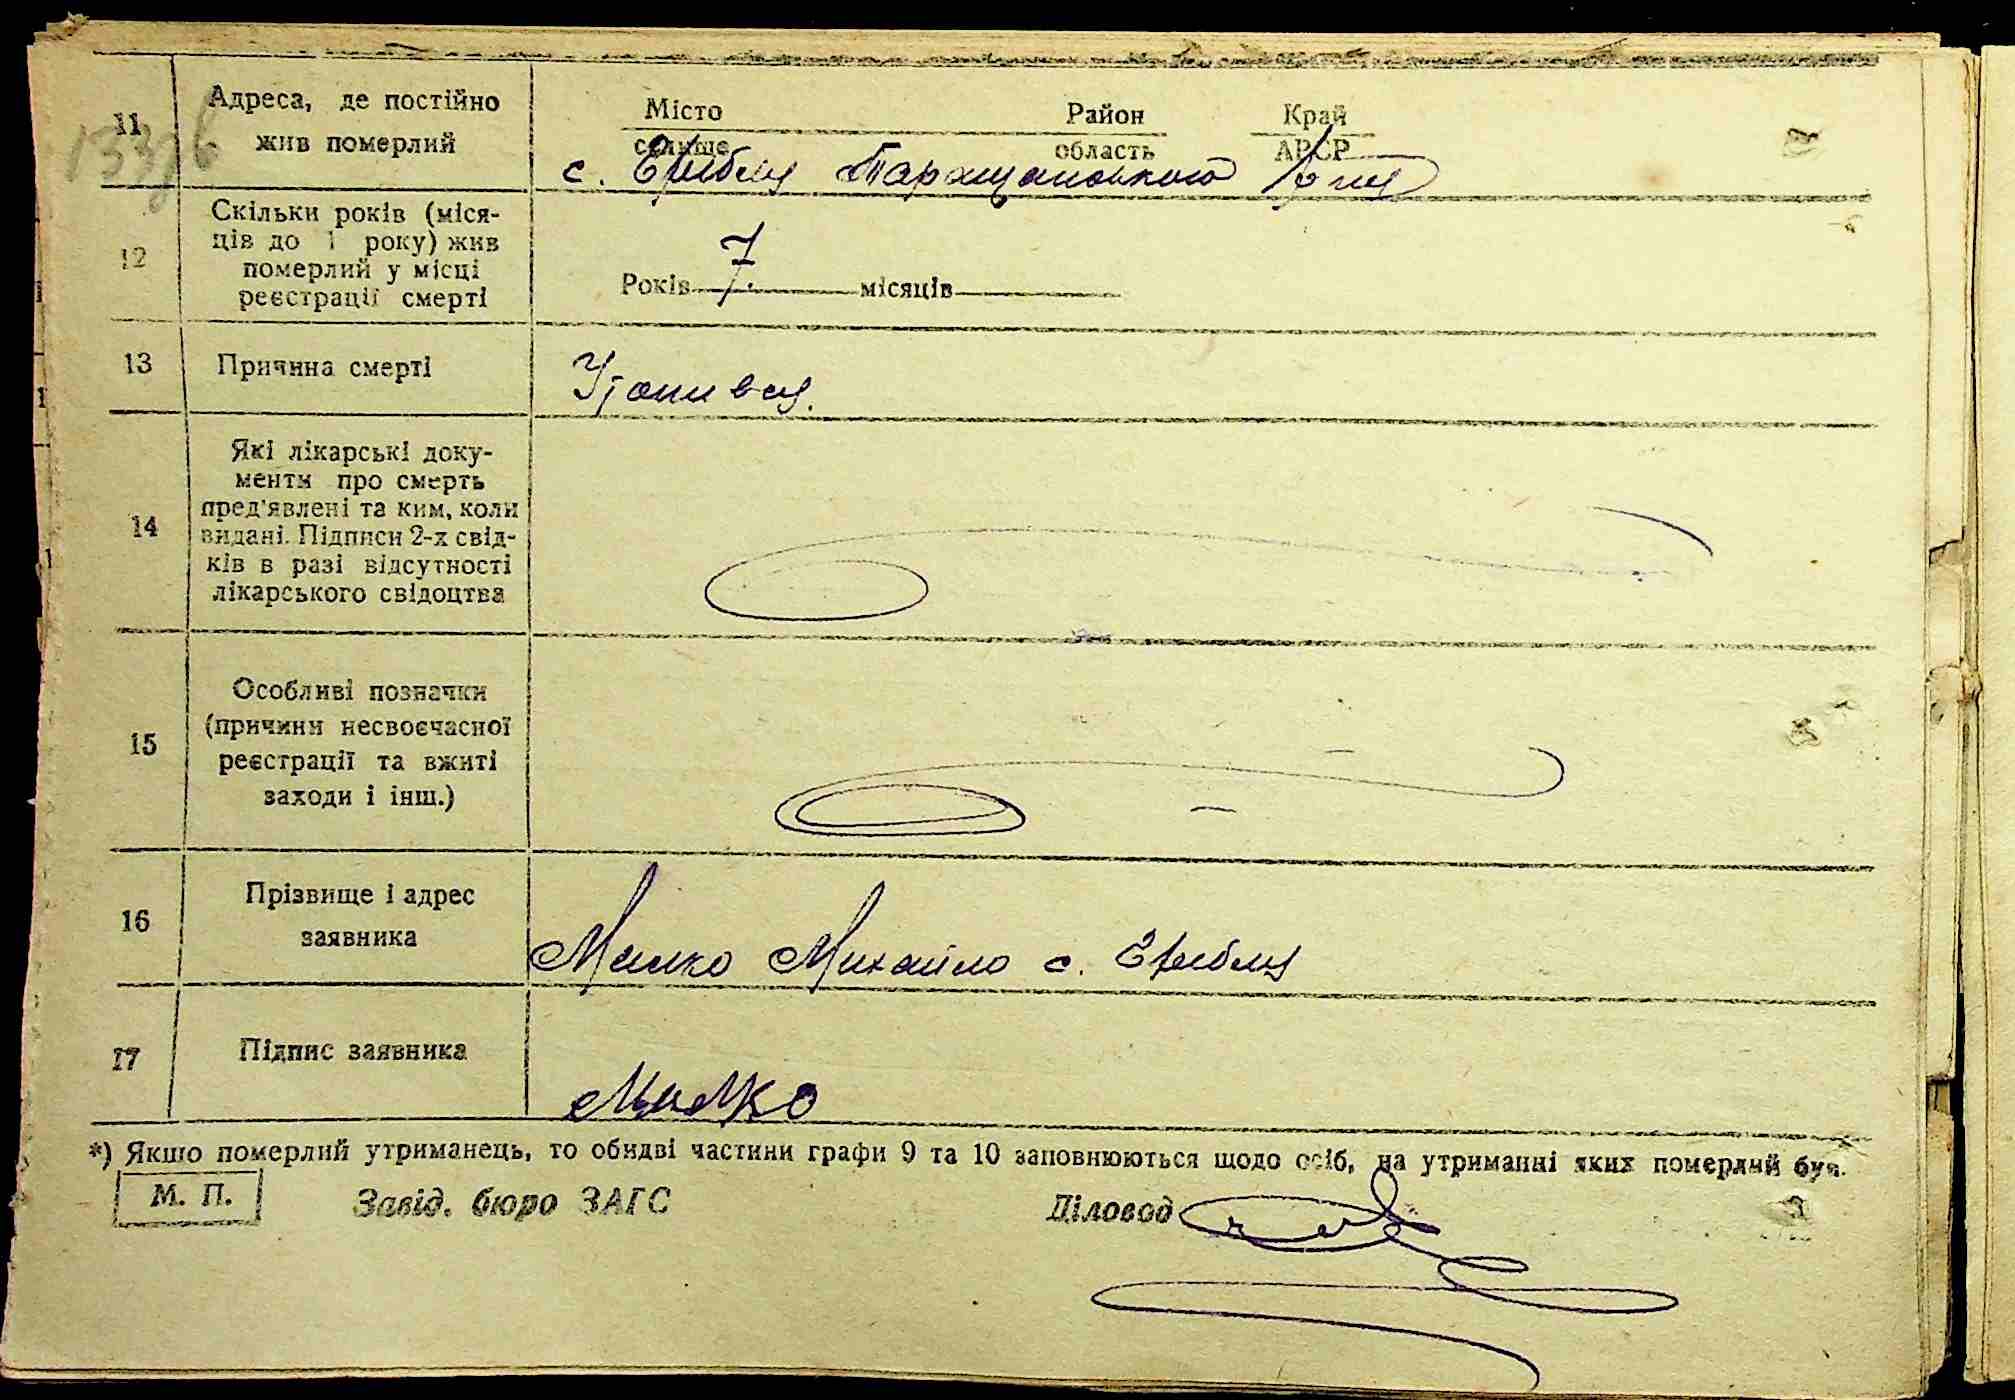 133зв
11
Адреса, де постійно
жив померлий
Місто Район Край
селище область АРСР
с. Гребля Таращанського
12
Скільки років (міся-
ців до 1 року) жив
померлий у місці
реєстрації смерті
Років 7. місяців
13
Причина смерті
Утопився.
14
Які лікарські доку-
менти про смерть
пред'явлені та ким, коли
видані. Підписи 2-х свід-
ків в разі відсутності
лікарського свідоцтва
15
Особливі позначки
(причини несвоєчасної
реєстрації та вжиті
заходи і інш.)
16
Прізвище і адрес
заявника
Михайло с. Гребля
17
Підпис заявника
*) Якшо померлий утриманець, то обидві частини графи 9 та 10 заповнюються щодо осіб, на утриманні яких померлий був.
М. П. Завід. бюро ЗАГС Діловод